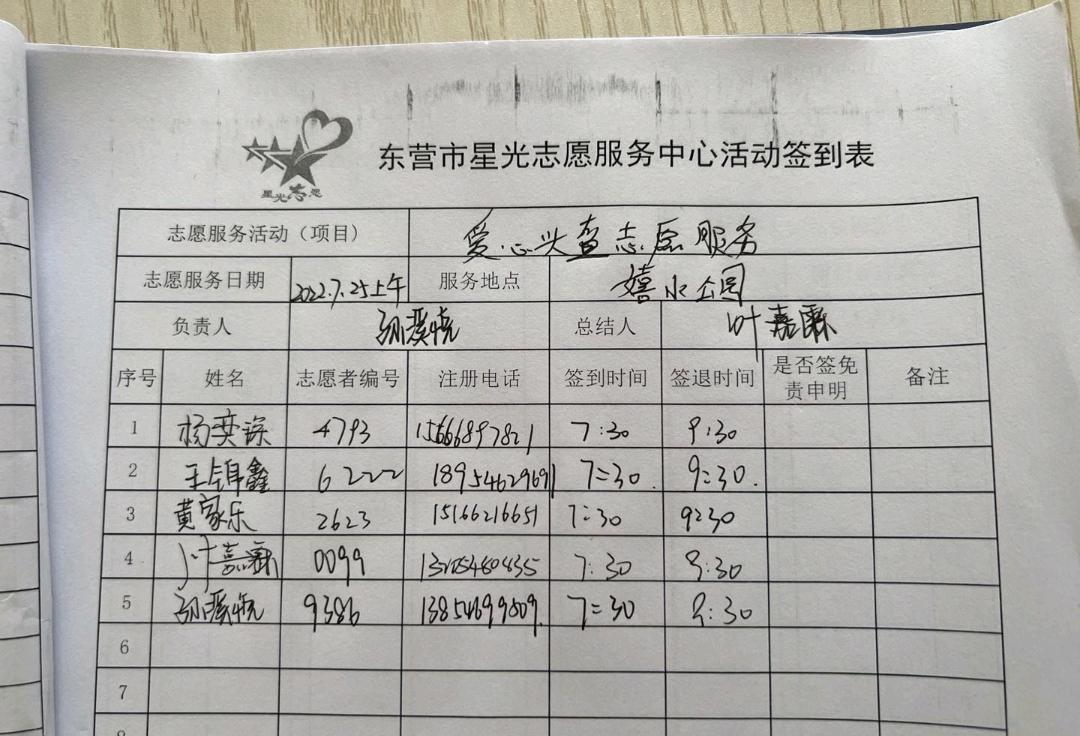 星光志愿
东营市星光志愿服务中心活动签到表
志愿服务活动（项目） 爱心头盔志愿服务
志愿服务日期 2022.7.25上午 服务地点 嬉水公园
负责人 孙溪悦 总结人 叶嘉霖
序号 姓名 志愿者编号 注册电话 签到时间 签退时间 是否签免责申明 备注
1 杨奕 4793 15666897821 7:30 9:30
2 王锦鑫 6222 18954629691 7:30 9:30.
3 黄家乐 2623 15166216651 7:30 9:30
4 叶嘉霖 0099 7:30 9:30
5 孙溪悦 9386 7:30 9:30
6
7